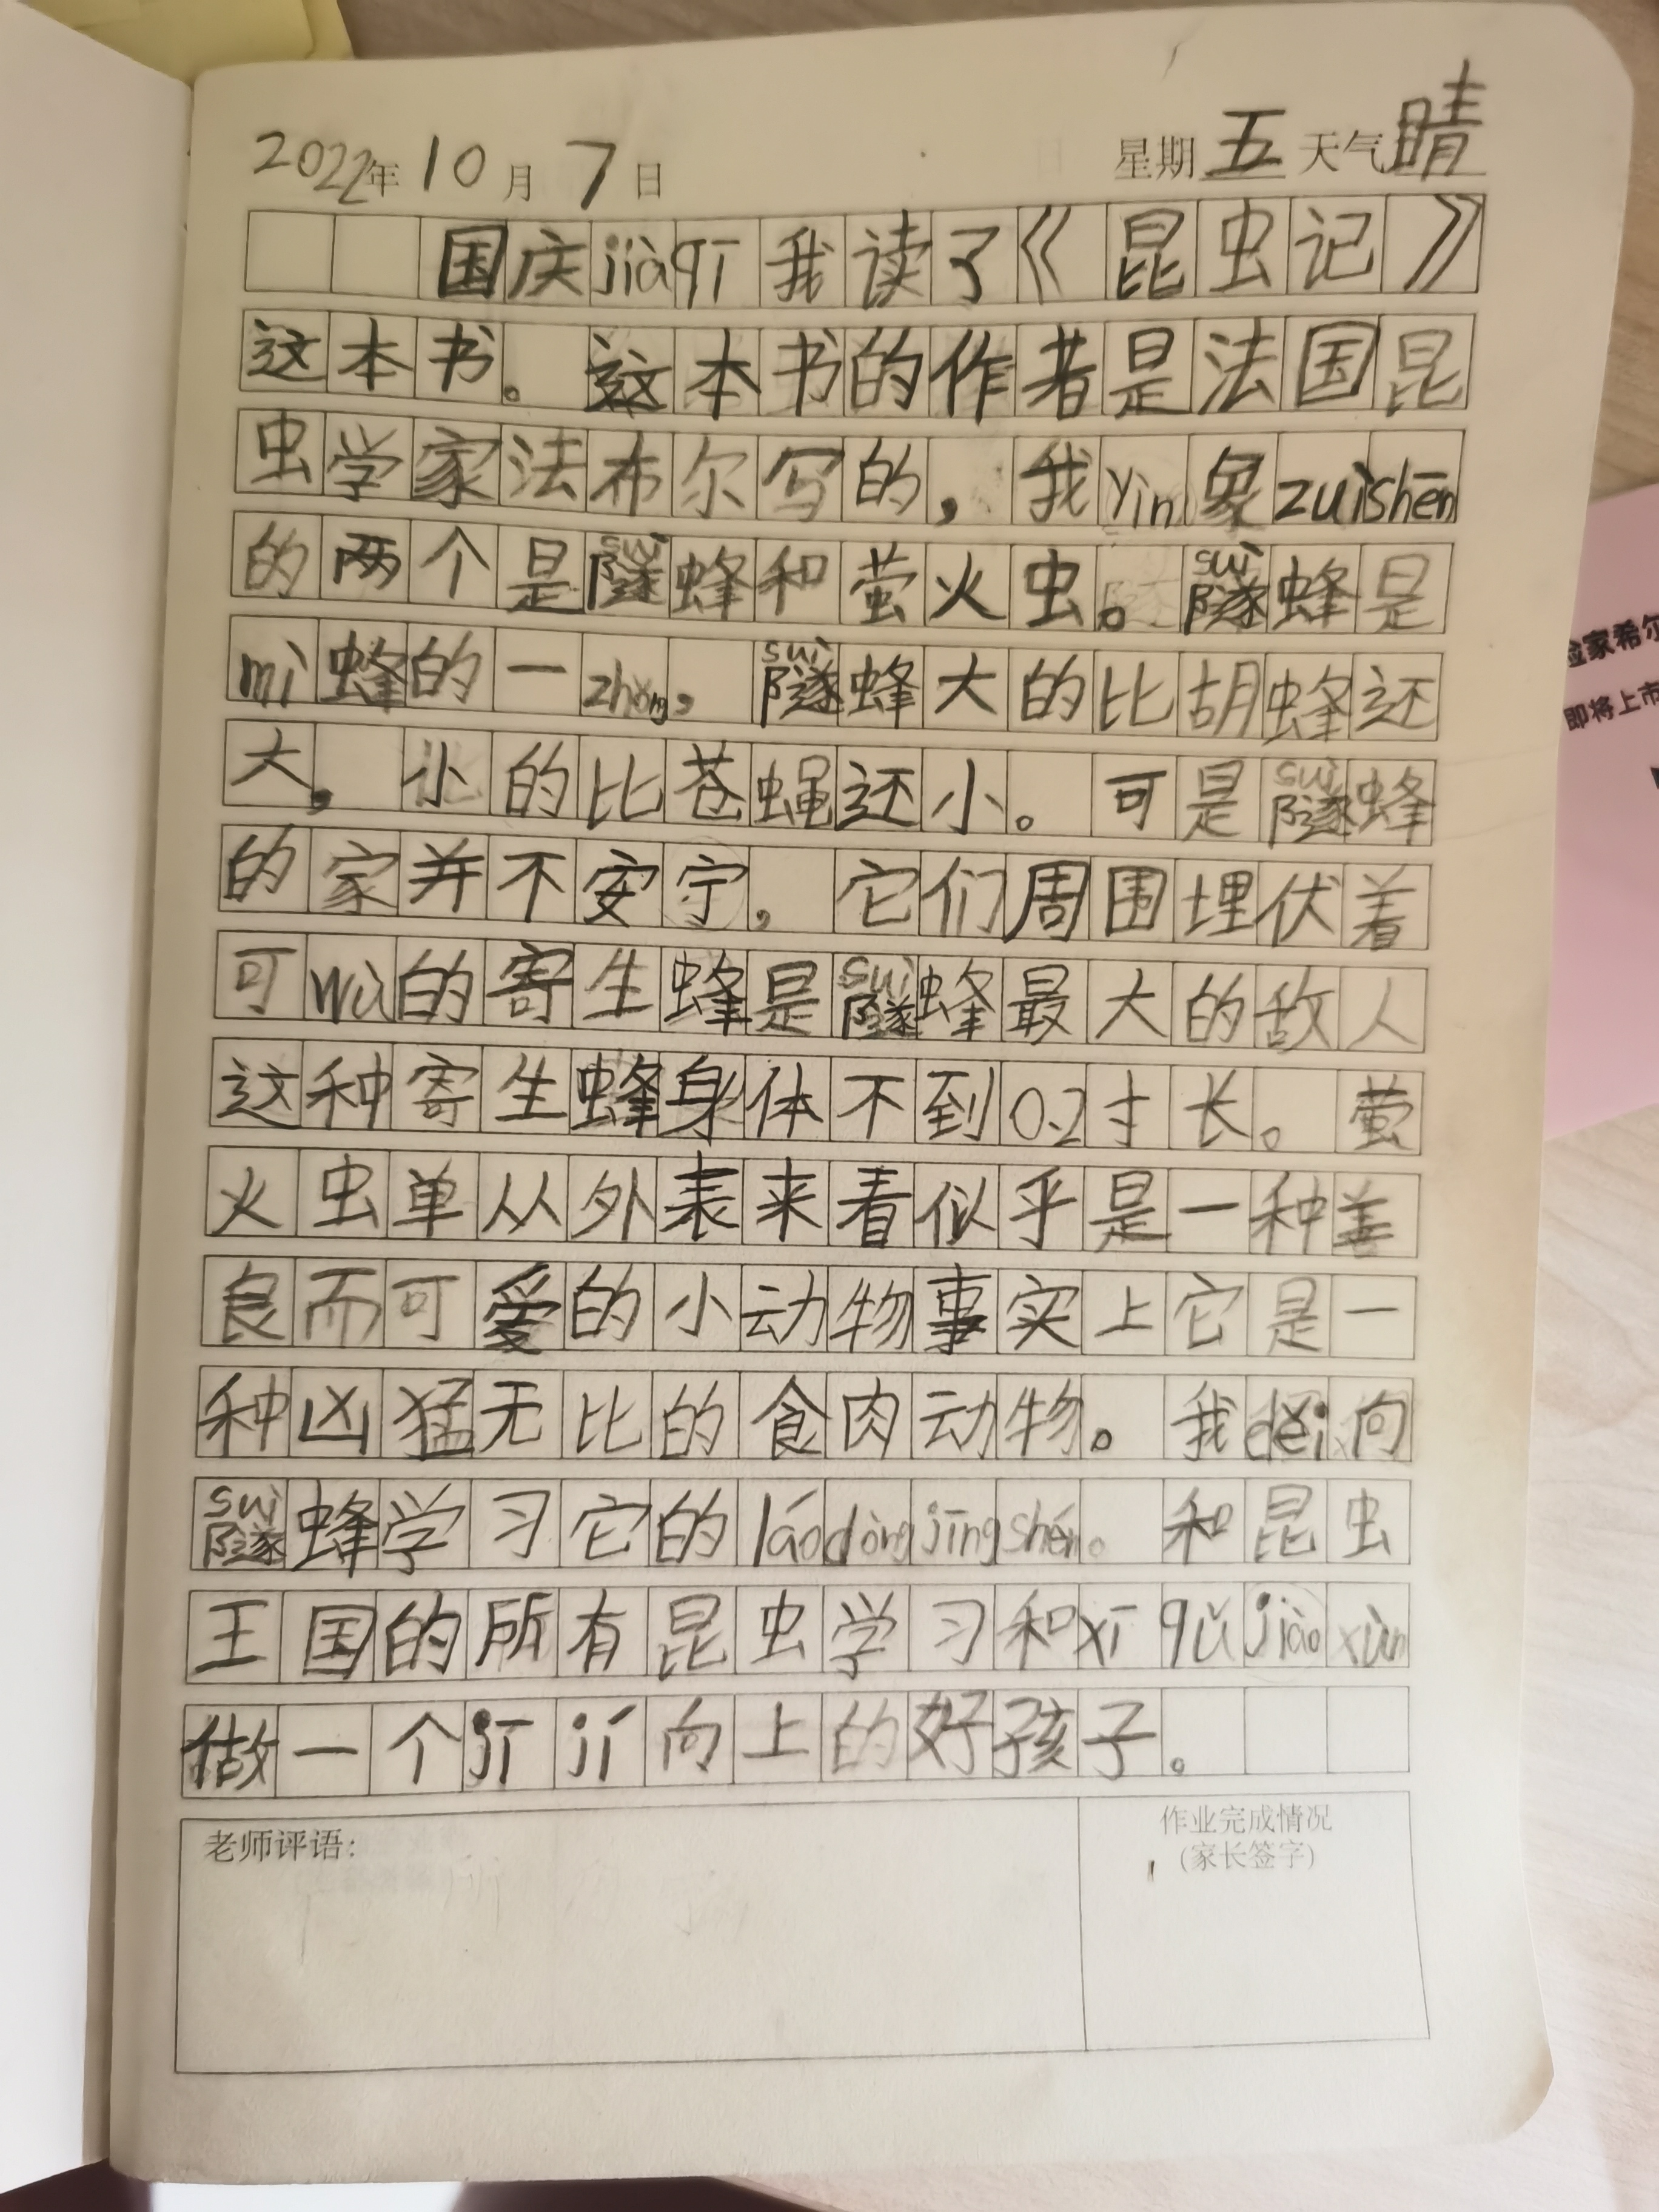 2022年10月7日 星期五天气晴
国庆jiàqī我读了《昆虫记》
这本书。这本书的作者是法国昆
虫学家法布尔写的，我yìn象zuìshēn
的两个是隧suì蜂和萤火虫。隧suì蜂是
mì蜂的一zhǒng，隧suì蜂大的比胡蜂还
大，小的比苍蝇还小。可是隧suì蜂
的家并不安宁，它们周围埋伏着
可wù的寄生蜂是隧suì蜂最大的敌人
这种寄生蜂身体不到0.2寸长。萤
火虫单从外表来看似乎是一种善
良而可爱的小动物事实上它是一
种凶猛无比的食肉动物。我děi向
隧suì蜂学习它的láodòngjīngshén。和昆虫
王国的所有昆虫学习和xī qǔ jiào xùn
做一个jī jí向上的好孩子。
老师评语：
作业完成情况
(家长签字)
险家希尔
即将上市